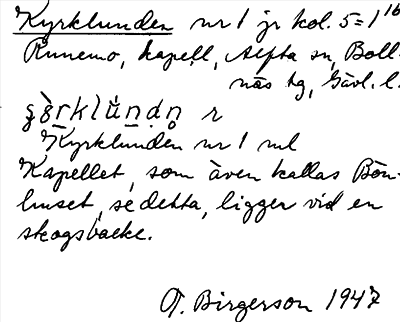 Kyrklunden nr 1 jr kol. 5=1 16
Runemo, kapell, Alfta sn, Boll-
näs tg, Gävl. l.
r
Kyrklunden nr 1 ml
Kapellet, som även kallas Bön-
huset, se detta, ligger vid en
skogsbacke.
T. Birgerson 1947